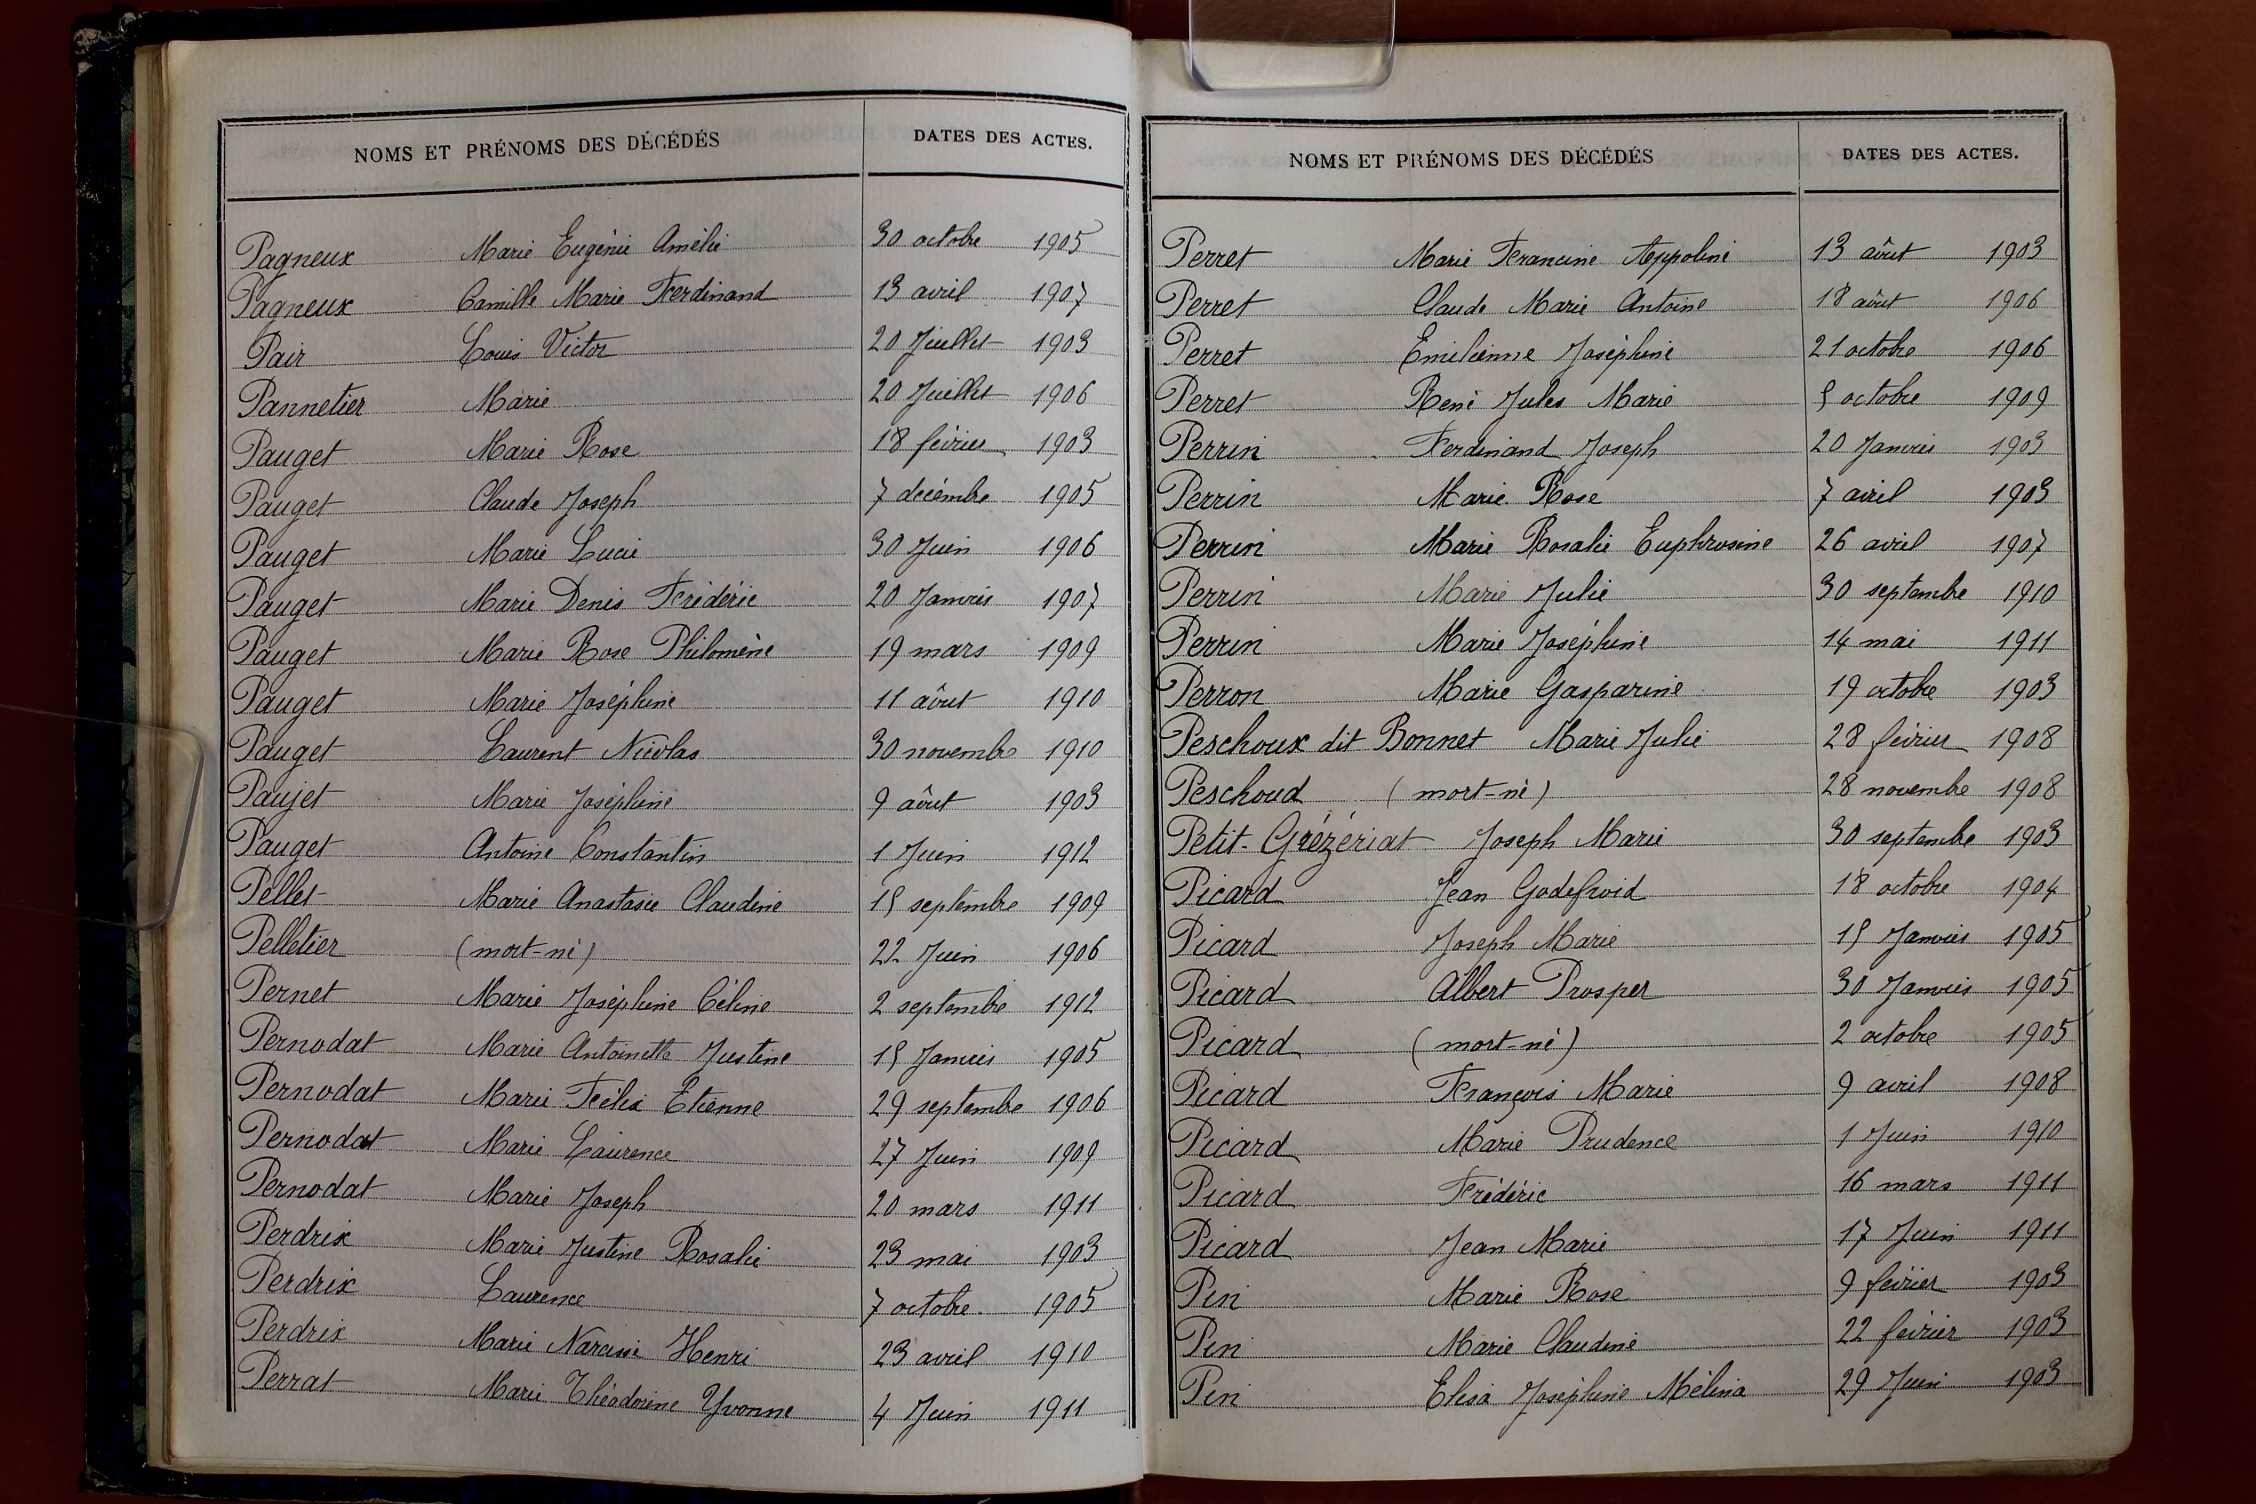 NOMS ET PRÉNOMS DES DÉCÉDÉS DATES DES ACTES.
Pagneux Marie Eugénie Amélie 30 octobre 1905
Pagneux Camille Marie Ferdinand 13 avril 1907
Pair Louis Victor 20 Juillet 1903
Pannetier Marie 20 Juillet 1906
Pauget Marie Rose 18 février 1903
Pauget Claude Joseph 7 decémbre 1905
Pauget Marie Lucie 30 Juin 1906
Pauget Marie Denis Frédéric 20 Janvier 1907
Pauget Marie Rose Philomène 19 mars 1909
Pauget Marie Joséphine 11 âout 1910
Pauget Laurent Nicolas 30 novembre 1910
Paujet Marie Joséphine 9 âout 1903
Pauget Antoine Constantin 1 Juin 1912
Pellet Marie Anastasie Claudine 15 septembre 1909
Pelletier (mort-né) 22 Juin 1906
Pernet Marie Joséphine Céline 2 septembre 1912
Pernodat Marie Antoinette Justine 15 Janvier 1905
Pernodat Marie Félix Etienne 29 septembre 1906
Pernodat Marie Laurence 27 Juin 1909
Pernodat Marie Joseph 20 mars 1911
Perdrix Marie Justine Rosalie 23 mai 1903
Perdrix Laurence 7 octobre. 1905
Perdrix Marie Narcisse Henri 23 avril 1910
Perrat Marie Théodorine Yvonne 4 Juin 1911
NOMS ET PRÉNOMS DES DÉCÉDÉS DATES DES ACTES.
Perret Marie Francine Appoline 13 âout 1903
Perret Claude Marie Antoine 18 âout 1906
Perret Emilienne Joséphine 21 octobre 1906
Perret René Jules Marie 5 octobre 1909
Perrin Ferdinand Joseph 20 Janvier 1903
Perrin Marie Rose 7 avril 1903
Perrin Marie Rosalie Euphrosine 26 avril 1907
Perrin Marie Julie 30 septembre 1910
Perrin Marie Joséphine 14 mai 1911
Perron Marie Gasparine 19 octobre 1903
Peschoux dit Bonnet Marie Julie 28 février 1908
Peschoud (mort-né) 28 novembre 1908
Petit-Grézériat Joseph Marie 30 septembre 1903
Picard Jean Godefroid 18 octobre 1904
Picard Joseph Marie 15 Janvier 1905
Picard Albert Prosper 30 Janvier 1905
Picard (mort-né) 2 octobre 1905
Picard François Marie 9 avril 1908
Picard Marie Prudence 1 Juin 1910
Picard Frédéric 16 mars 1911
Picard Jean Marie 17 Juin 1911
Pin Marie Rose 9 février 1903
Pin Marie Claudine 22 février 1903
Pin Elisa Joséphine Mélina 29 Juin 1903